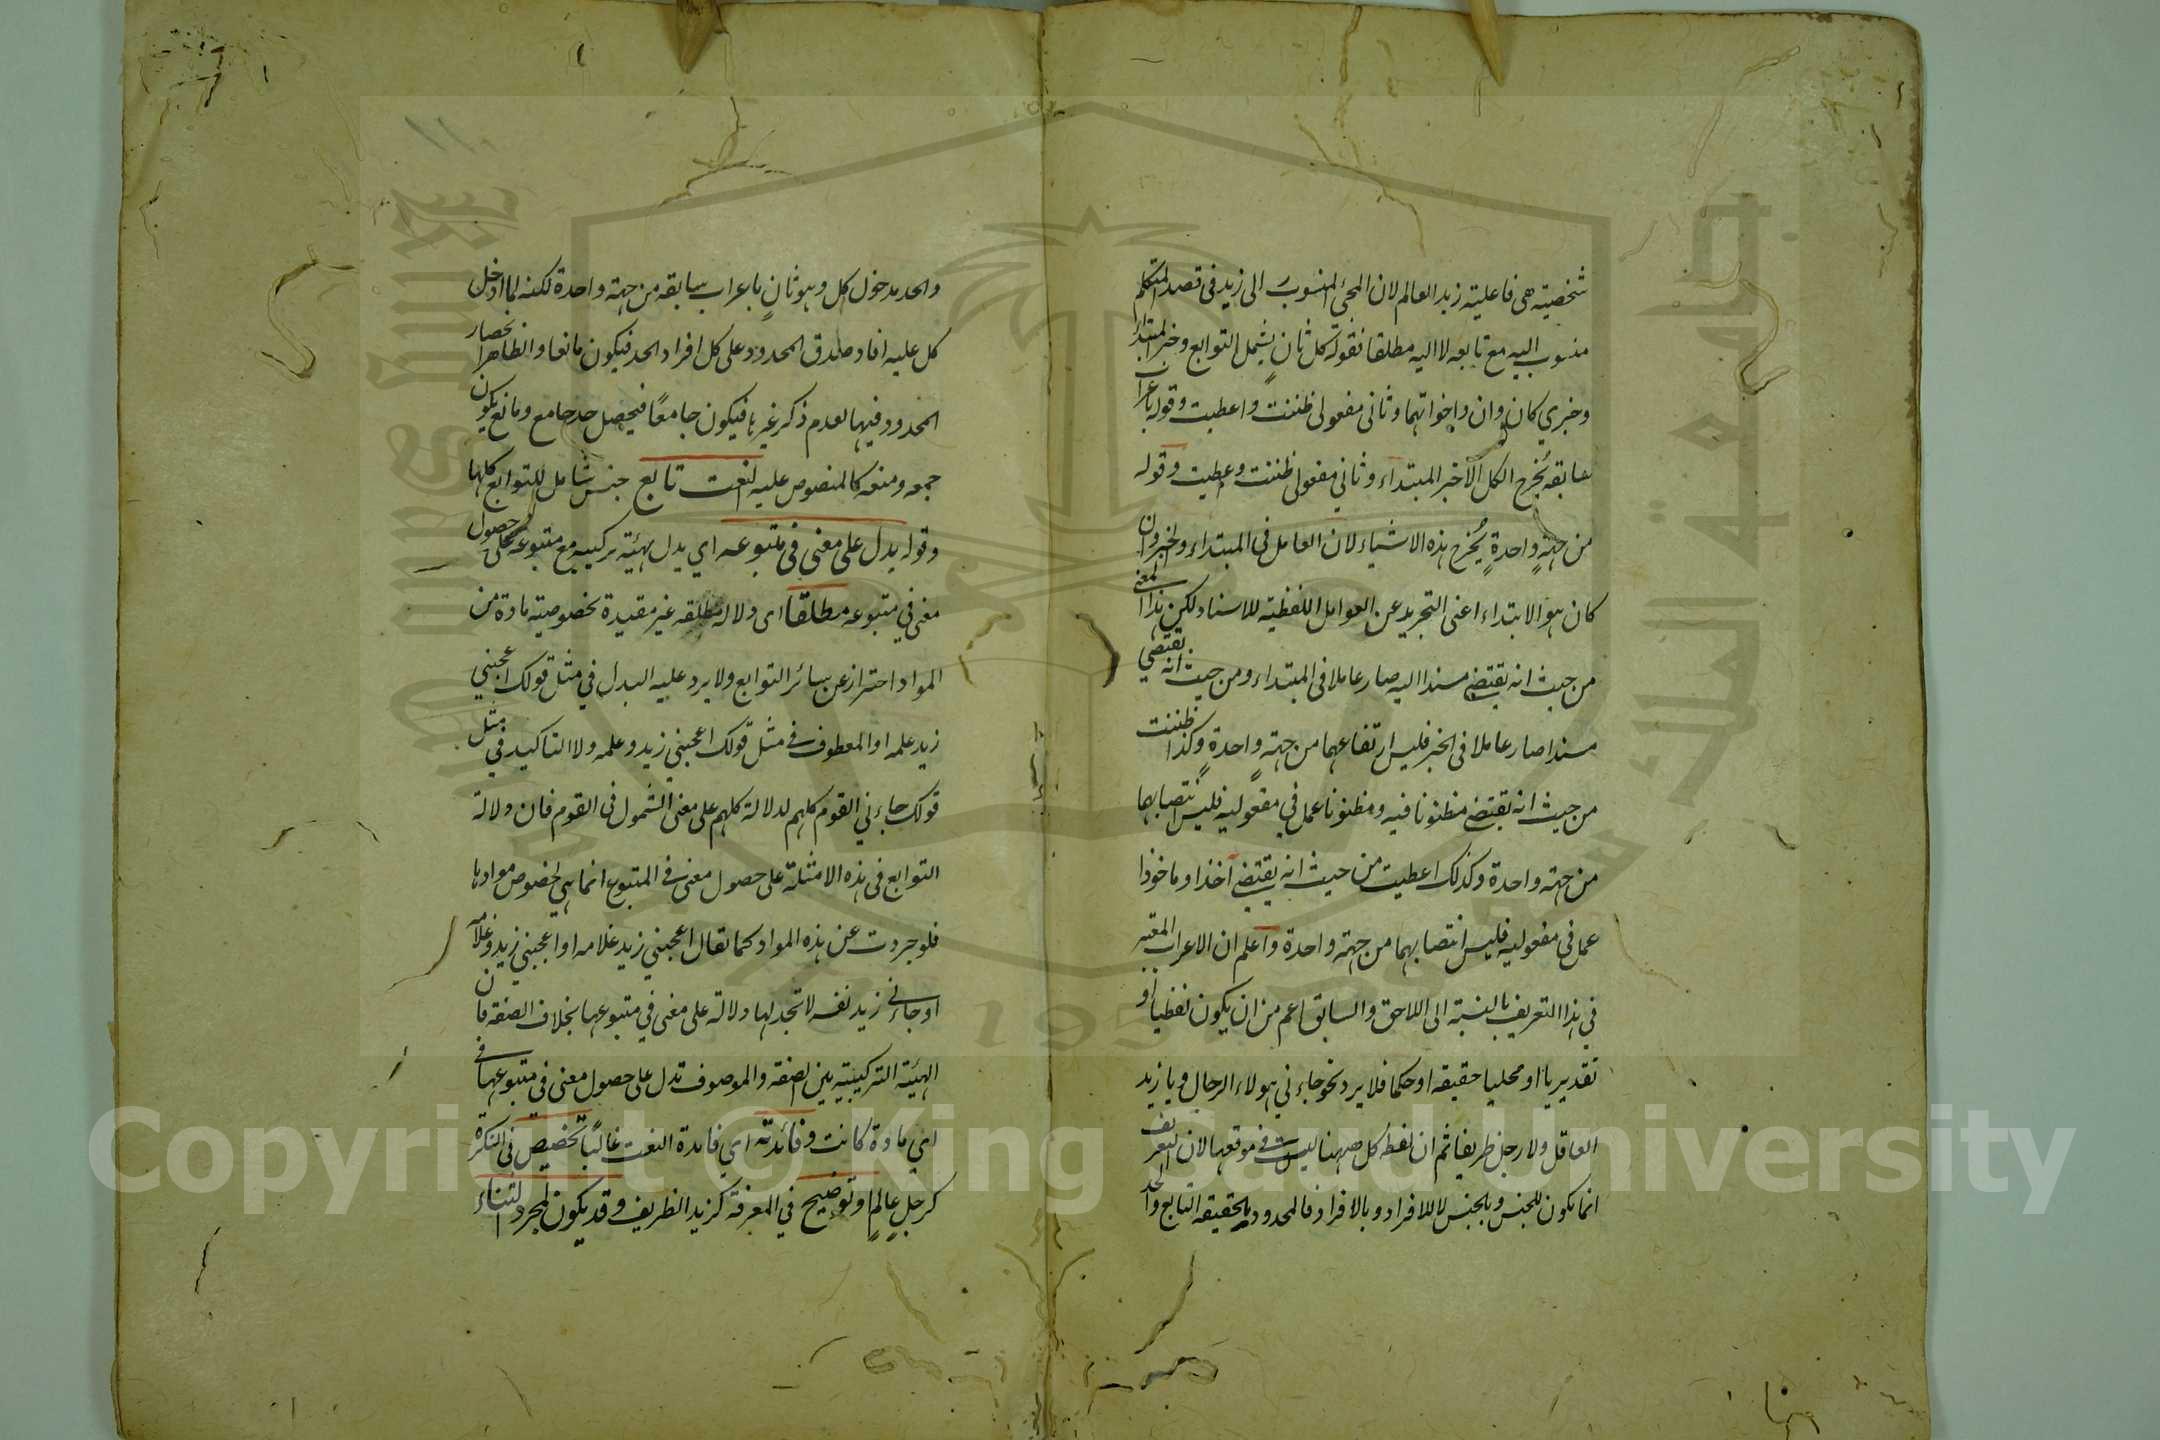 شخصيته هى فاعلية زيد العالم لان المجئ المنسوب الى زيد فى قصد المتكلم
منسوب اليه مع تابعه لا اليه مطلقا فقوله كل ثان يشمل التوابع وخبر المبتداء
وخبري كان وان واخواتهما وثانى مفعولى ظننت واعطيت وقوله باعراب
سابقه يُخرج الكل الا خبر المبتداء وثاني مفعولى ظننت واعطيت وقوله
من جهةٍ واحدةٍ يُخرج هذه الاشياء لان العامل فى المبتداء والخبر وان
كان هو الابتداء اعنى التجريد عن العوامل اللفظية للاسناد لكن هذا المعنى
من حيث انه يقتضي مسندا اليه صار عاملا فى المبتداء ومن حيث انه يقتضي
مسندا صار عاملا فى الخبر فليس ارتفاعهما من جهة واحدة وكذا ظننت
من حيث انه يقتضي مظنونا فيه ومظنونا عمل في مفعوليه فليس انتصابهما
من جهة واحدة وكذلك اعطيت من حيث انه يقتضي آخذا وماخوذا
عمل فى مفعوليه فليس انتصابهما من جهة واحدة واعلم ان الاعراب المعتبر
في هذا التعريف بالنسبة الى اللاحق والسابق اعم من ان يكون لفظيا او
تقديريا او محليا حقيقه او حكما فلا يرد نحو جاءني هولاء الرجال ويا زيد
العاقل ولا رجل ظريفا ثم ان لفظ كل ههنا ليست فى موقعها لان التعريف
انما يكون للجنس وبالجنس لا للافراد وبالافراد فالمحدود بالحقيقه التابع والحد
والحد مدخول كل وهو ثانٍ باعراب سابقه من جهة واحدة لكنه لما ادخل
كل عليه افاد صدق المحدود على كل افراد الحد فيكون مانعا والظاهر انحصار
المحدود فيها لعدم ذكر غيرها فيكون جامعًا فيحصل حد جامع ومانع يكون
جمعه ومنعه كالمنصوص عليه النعت تابع جنس شامل للتوابع كلها
وقوله يدل على معنى فى متبوعه اي يدل بهيئة تركيبيه مع متبوعه على حصول
معنى في متبوعه مطلقا اى دلالة مطلقه غير مقيدة بخصوصيته مادة من
المواد احتراز عن سائر التوابع ولا يرد عليه البدل في مثل قولك اعجبني
زيد علمه او المعطوف فى مثل قولك اعجبني زيد وعلمه ولا التاكيد في مثل
قولك جاءني القوم كلهم لدلالة كلهم على معنى الشمول فى القوم فان دلالة
التوابع فى هذه الامثلة على حصول معنى فى المتبوع انما هي لخصوص موادها
فلو جردت عن هذه المواد كما يقال اعجبني زيد غلامه او اعجبني زيد وغلامه
او جاءنى زيد نفسه لا تجد لها دلالة على معنى في متبوعها بخلاف الصفه فان
الهيئة التركيبيه بين الصفه والموصوف تدل على حصول معنى فى متبوعها فى
اي مادة كانت وفائدته اي فائدة النعت غالبًا تخصيص فى النكرة
كرجلٍ عالمٍ او توضيح في المعرفة كزيد الظريف وقد يكون لمجرد الثناء
Copyright © King Saud University
1957